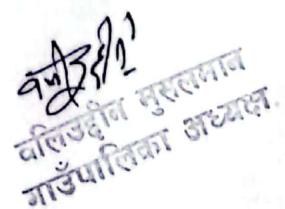 वलिउद्दीन मुसलमान
गाउँपालिका अध्यक्ष.